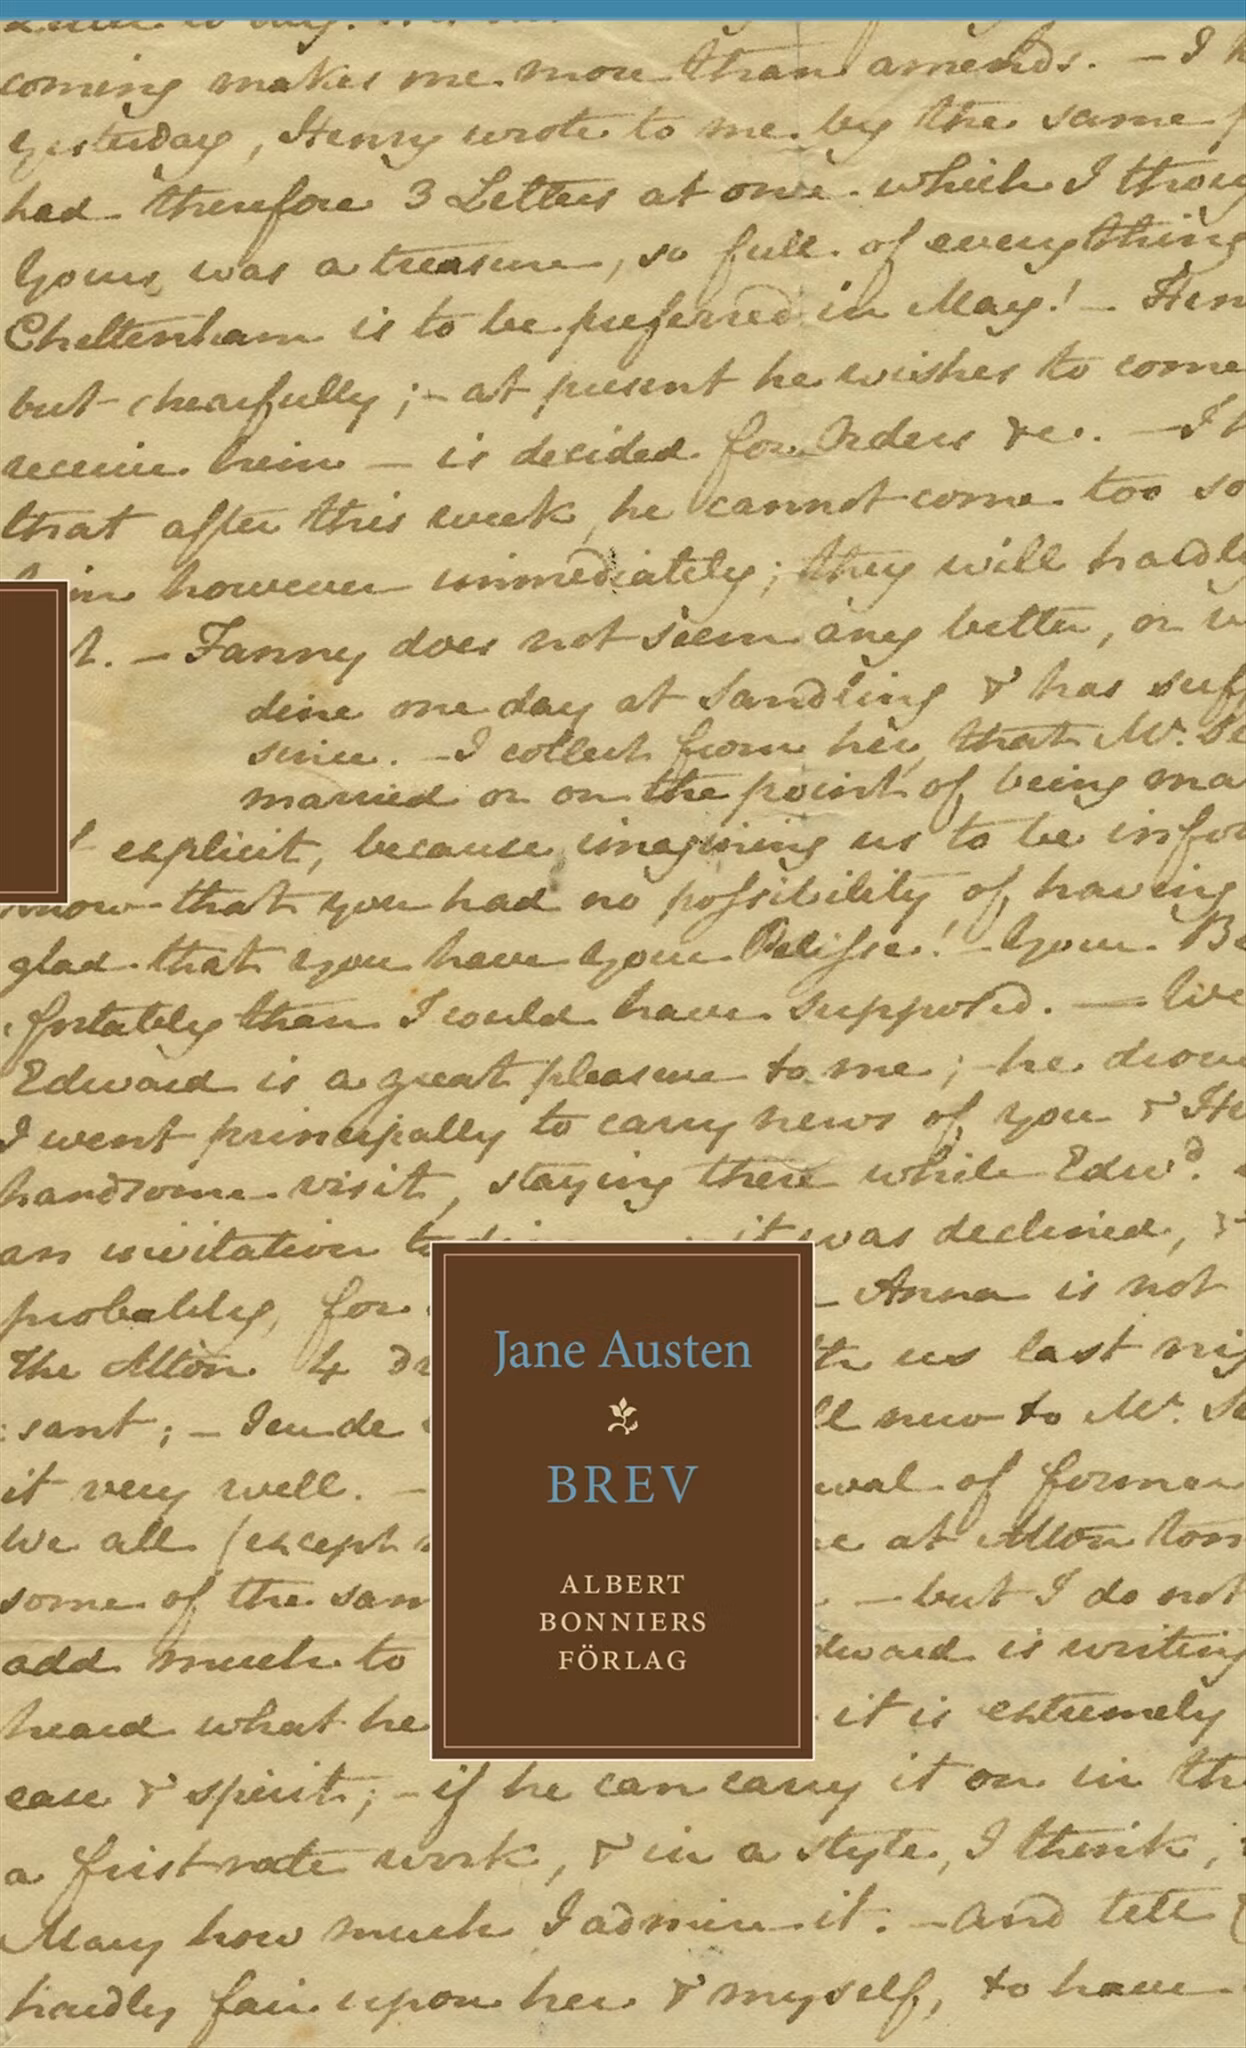 coming makes me more than amends. — I h
Yesterday, Henry wrote to me by the same p
had therefore 3 Letters at once which I thoug
Yours was a treasure, so full of everything
Cheltenham is to be preferred in May! — Hen
but chearfully; — at present he wishes to come
receive him — is decided for Orders &c. — I h
that after this week, he cannot come too so
him however immediately; they will hardly
t. — Fanny does not seem any better, or
dine one day at Sandling & has suff
since. — I collect from her, that Mr. Se
married or on the point of being ma
explicit, because imagining us to be infor
know that you had no possibility of having
glad that you have your Pelisse! — Your Be
fortably than I would have supposed. — live
Edward is a great pleasure to me; — he drove
I went principally to carry news of you & He
handsome visit, staying there while Edwd.
an invitation to it was declined, &
probably, for — Anna is not
the Alton 4 dr th us last nig
sant; — Jeu de ll new to Mr. Se
it very well. — wal of former
We all (except e at Alton tom
some of the sam — but I do not
add much to dward is writing
heard what he it is extremely
ease & spirit; — if he can carry it on in th
a first rate work, & in a style, I think,
Mary how much I admire it. — And tell
hardly fair upon her & myself, to have
Jane Austen
BREV
ALBERT
BONNIERS
FÖRLAG